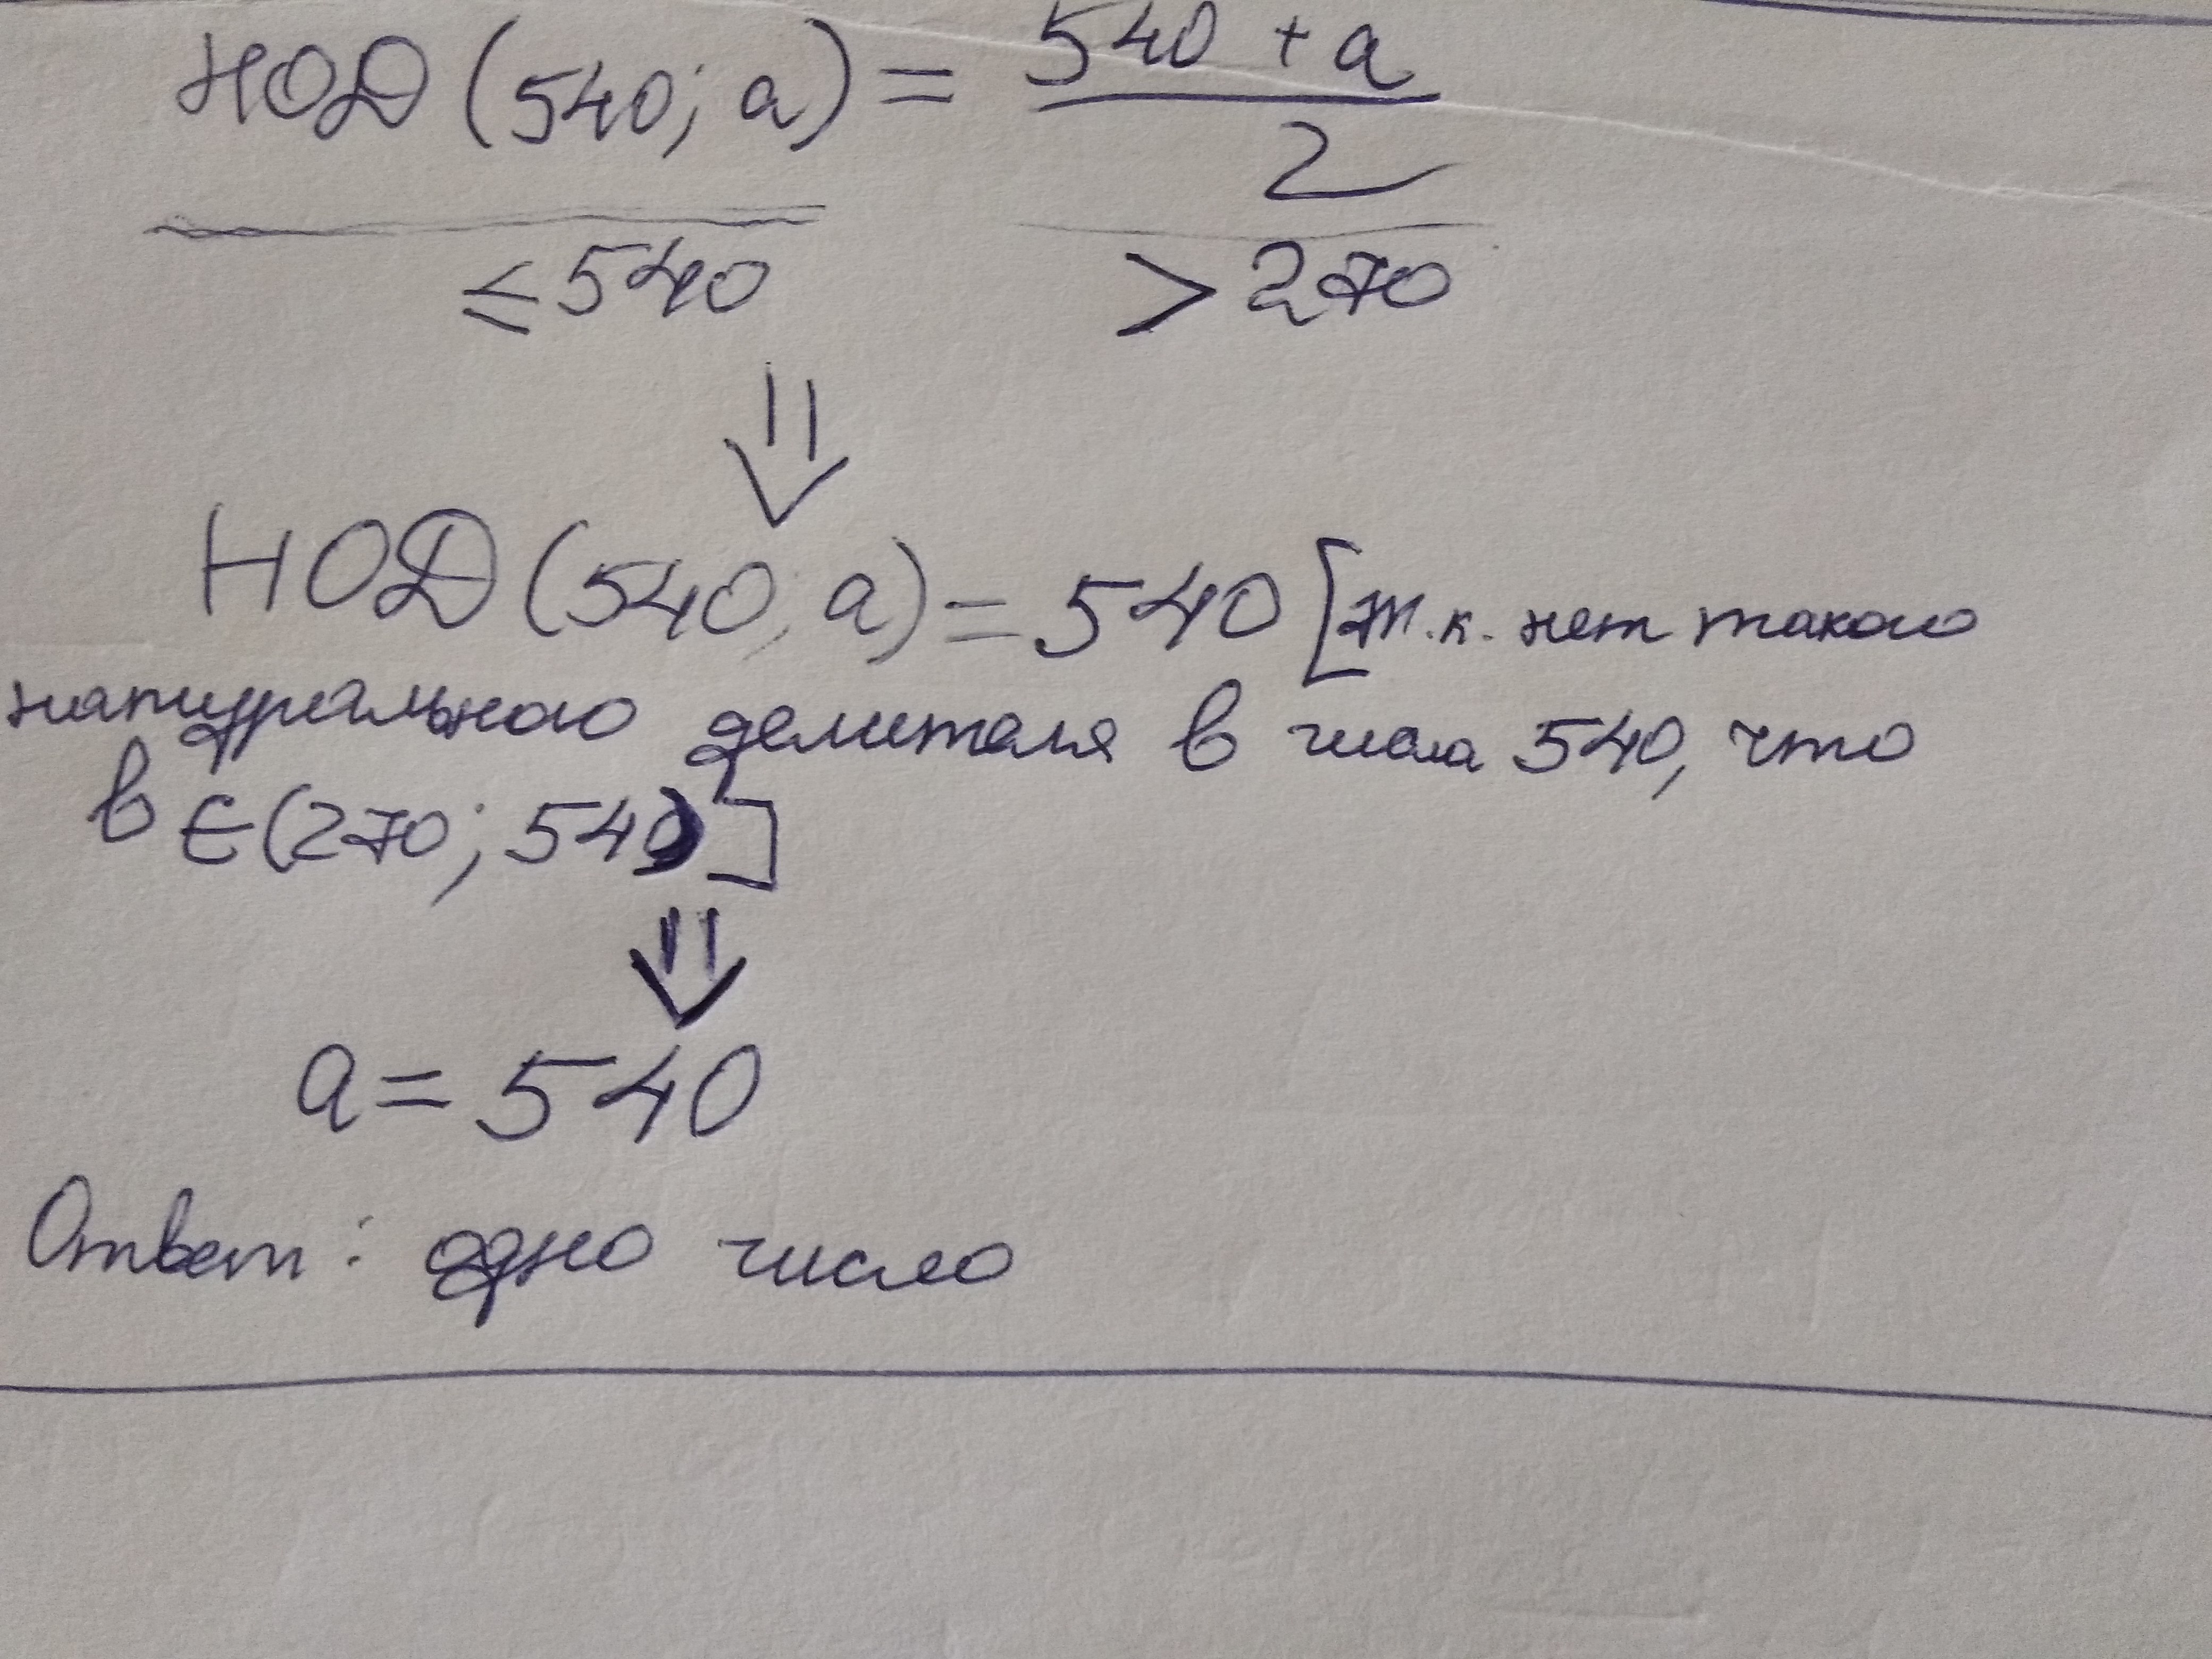 НОД (540; a) = 540 + a / 2
≤ 540 > 270
⇓
НОД (540; a) = 540 [т.к. нет такого
натурального делителя b числа 540, что
b ∈ (270; 540)]
⇓
a = 540
Ответ: одно число